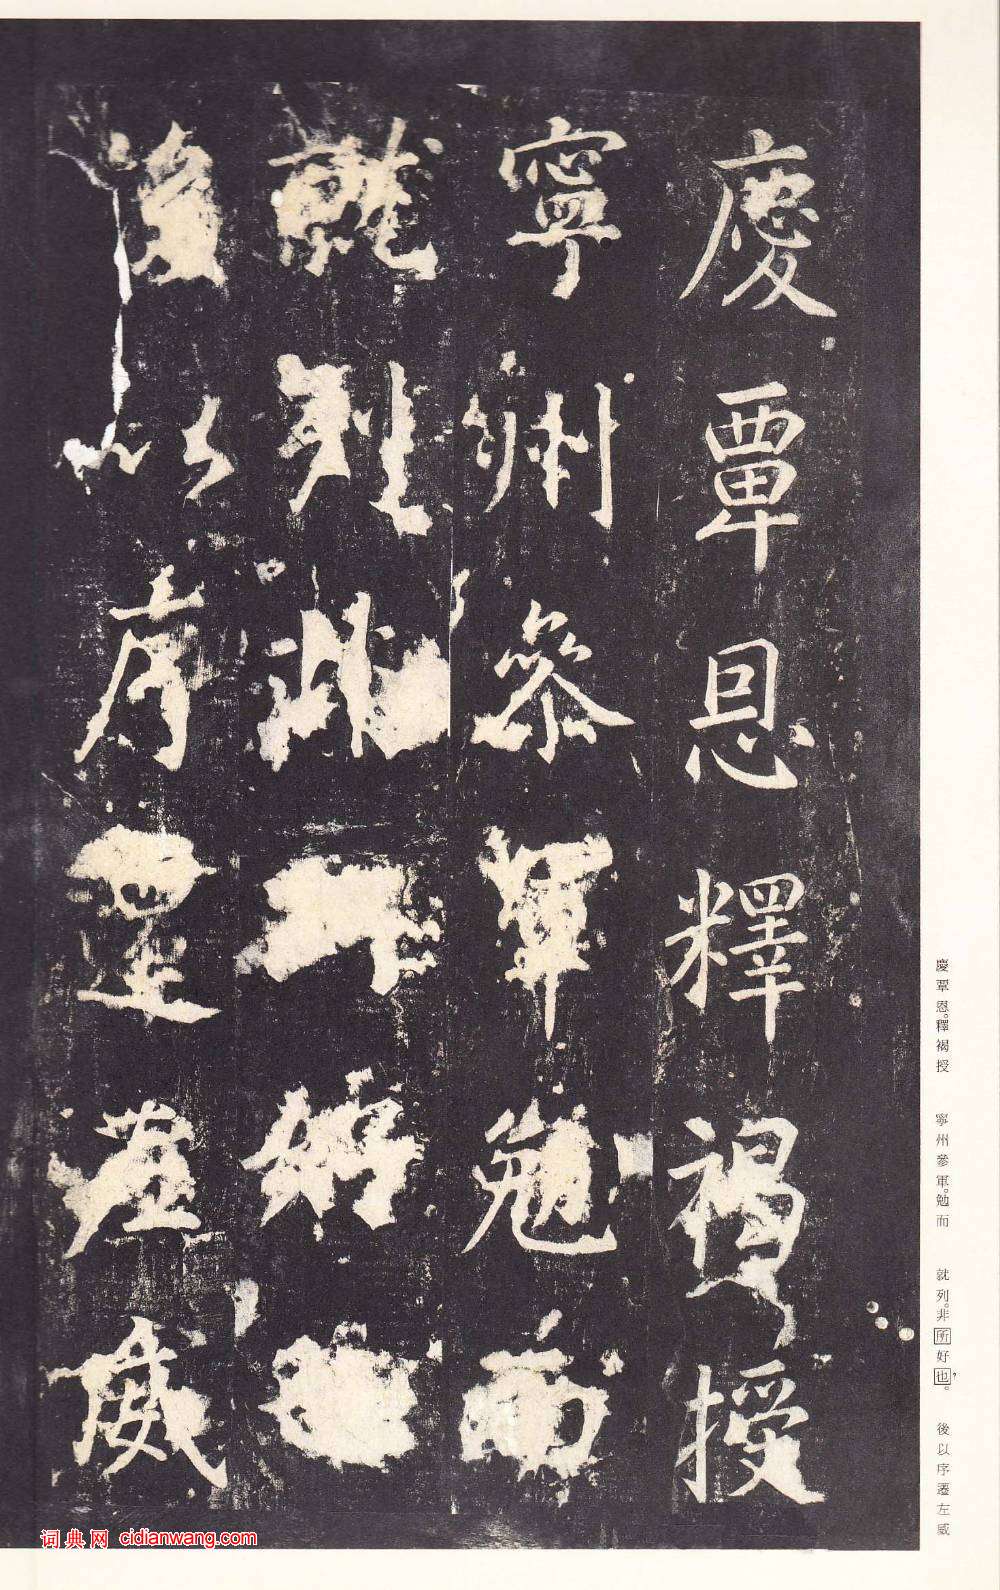 慶覃恩釋褐授
寧州參軍勉而
就列非好
後以序遷左威
慶覃恩。釋褐授　寧州參軍。勉而　就列。非所好也。　後以序遷左威
词典网 cidianwang.com